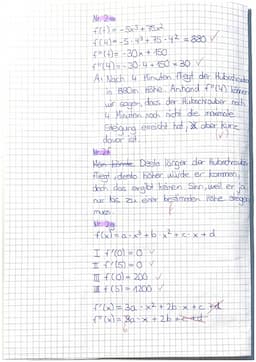 Nr. 2e
f(t) = -5x³ + 75x²
f(4) = -5 · 4³ + 75 · 4² = 880 ✓
f"(t) = -30x + 150
f"(4) = -30 · 4 + 150 = 30 ✓
A: Nach 4 Minuten fliegt der Hubschrauber
in 880m Höhe. Anhand f"(4) können
wir sagen, dass der Hubschrauber nach
4 Minuten noch nicht die maximale
Steigung erreicht hat, aber kurz
davor ist.
Nr. 2f
Man könnte Desto länger der Hubschrauber
fliegt, desto höher würde er kommen,
doch das ergibt keinen Sinn, weil er ja
nur bis zu einer bestimmten Höhe steigen
muss.
Nr. 2g
f(x) = a · x³ + b x² + c · x + d
I f'(0) = 0 ✓
II f'(5) = 0 ✓
III f(0) = 200 ✓
f(5) = 1200 ✓
f'(x) = 3a · x² + 2b · x + c + d
f"(x) = 8a · x + 2b + c + d